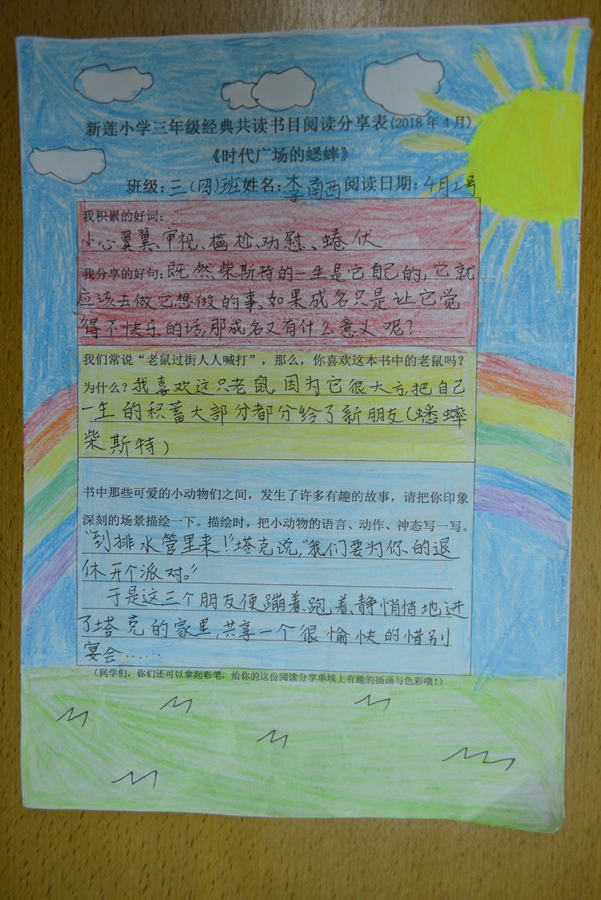 新莲小学三年级经典共读书目阅读分享表(2018年4月)
《时代广场的蟋蟀》
班级:三(四)班姓名:李南西阅读日期:4月2号
我积累的好词:
小心翼翼、审视、尴尬、劝慰、蜷伏
我分享的好句:既然柴斯特的一生是它自己的,它就
应该去做它想做的事。如果成名只是让它觉
得不快乐的话,那成名又有什么意义呢?
我们常说“老鼠过街人人喊打”,那么,你喜欢这本书中的老鼠吗?
为什么?我喜欢这只老鼠。因为它很大方,把自己
一生的积蓄大部分都分给了新朋友(蟋蟀
柴斯特)
书中那些可爱的小动物们之间,发生了许多有趣的故事,请把你印象
深刻的场景描绘一下。描绘时,把小动物的语言、动作、神态写一写。
“到排水管里来!”塔克说,“我们要为你的退
休开个派对。”
于是这三个朋友便蹦着、跑着、静悄悄地进
了塔克的家里,共享一个很愉快的惜别
宴会……
(同学们,你们还可以拿起彩笔,给你的这份阅读分享单填上有趣的插画与色彩哦!)